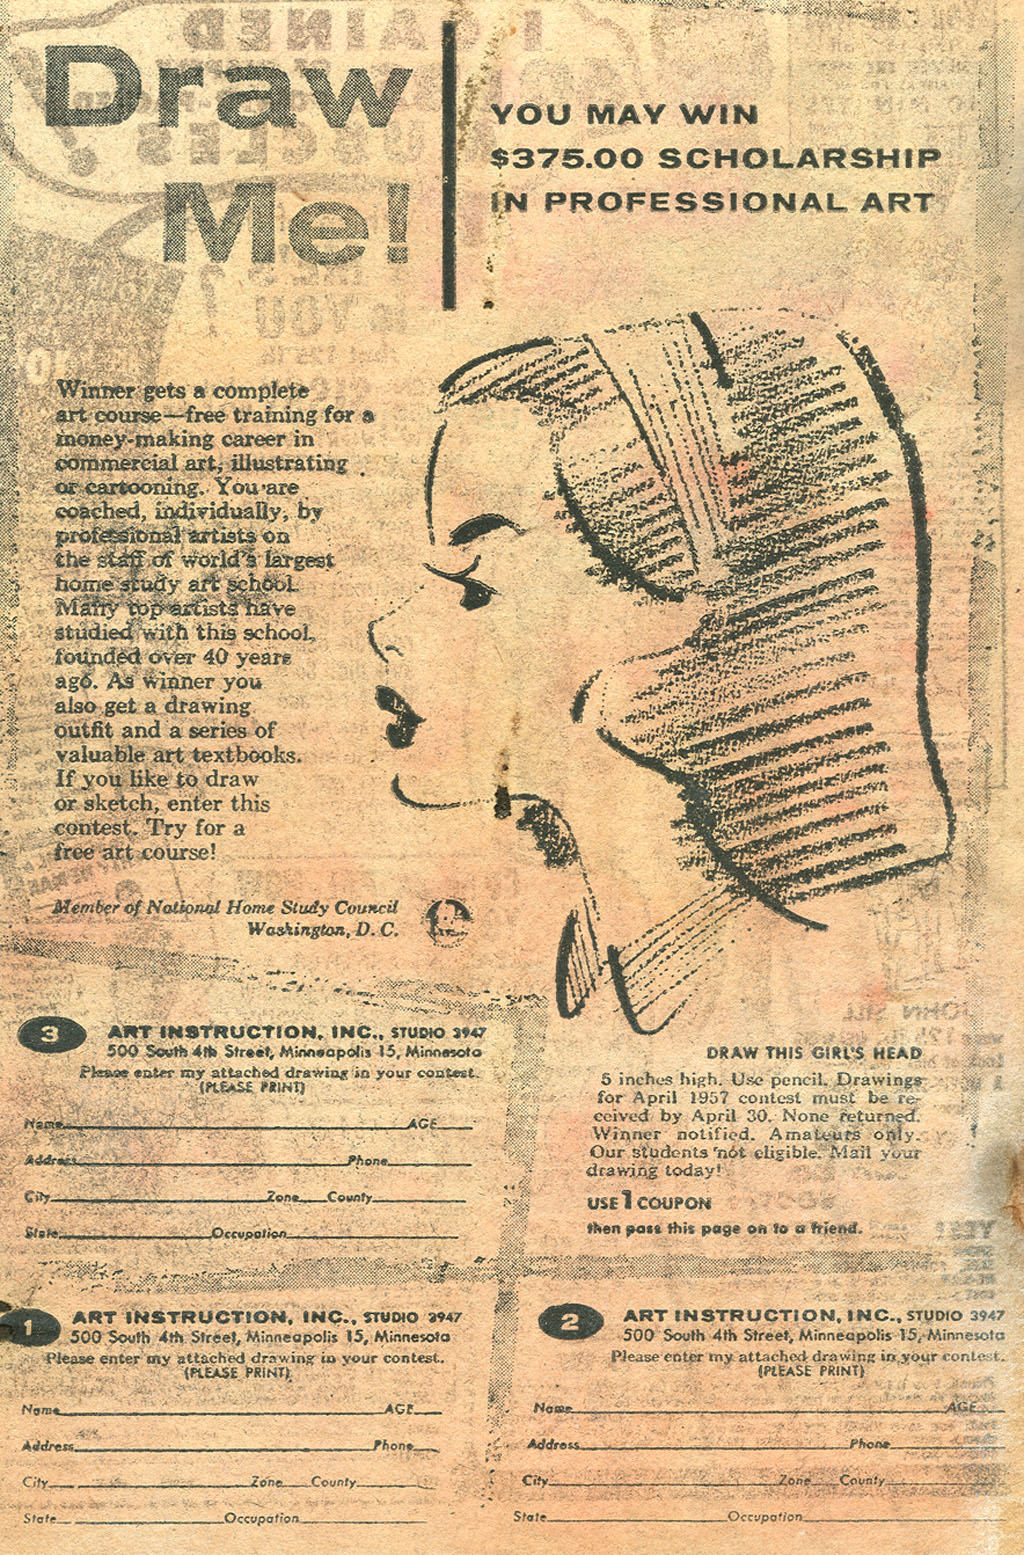 Draw
Me!
YOU MAY WIN
$375.00 SCHOLARSHIP
IN PROFESSIONAL ART
Winner gets a complete
art course—free training for a
money-making career in
commercial art, illustrating
or cartooning. You are
coached, individually, by
professional artists on
the staff of world's largest
home study art school.
Many top artists have
studied with this school,
founded over 40 years
ago. As winner you
also get a drawing
outfit and a series of
valuable art textbooks.
If you like to draw
or sketch, enter this
contest. Try for a
free art course!
Member of National Home Study Council
Washington, D. C.
3 ART INSTRUCTION, INC., STUDIO 3947
500 South 4th Street, Minneapolis 15, Minnesota
Please enter my attached drawing in your contest.
(PLEASE PRINT)
Name AGE
Address Phone
City Zone County
State Occupation
DRAW THIS GIRL'S HEAD
5 inches high. Use pencil. Drawings
for April 1957 contest must be re-
ceived by April 30. None returned.
Winner notified. Amateurs only.
Our students not eligible. Mail your
drawing today!
USE 1 COUPON
then pass this page on to a friend.
1 ART INSTRUCTION, INC., STUDIO 3947
500 South 4th Street, Minneapolis 15, Minnesota
Please enter my attached drawing in your contest.
(PLEASE PRINT)
Name AGE
Address Phone
City Zone County
State Occupation
2 ART INSTRUCTION, INC., STUDIO 3947
500 South 4th Street, Minneapolis 15, Minnesota
Please enter my attached drawing in your contest.
(PLEASE PRINT)
Name AGE
Address Phone
City Zone County
State Occupation